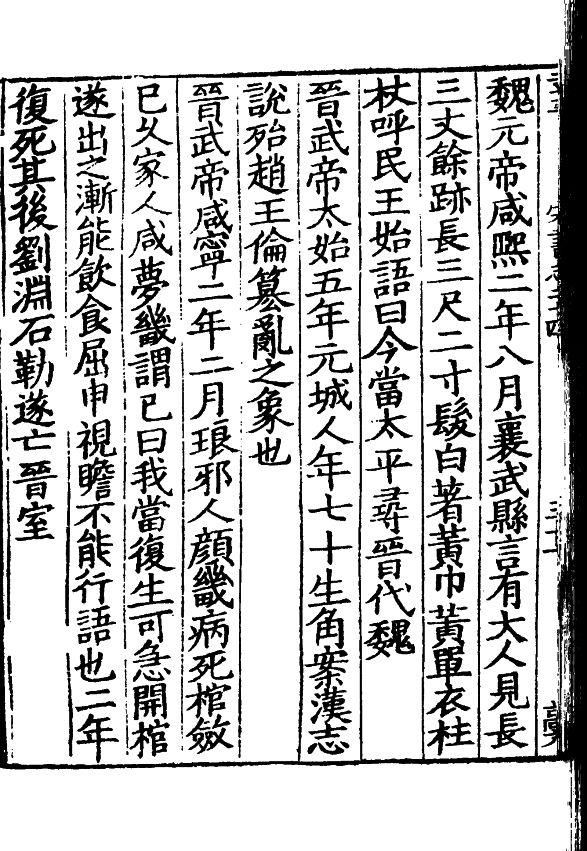 魏元帝咸熙二年八月襄武縣言有大人見長
三丈餘跡長三尺二寸髮白著黃巾黃單衣柱
杖呼民王始語曰今當太平尋晉代魏
晉武帝太始五年元城人年七十生角案漢志
說殆趙王倫篡亂之象也
晉武帝咸寧二年二月琅邪人顏畿病死棺斂
已久家人咸夢畿謂已曰我當復生可急開棺
遂出之漸能飲食屈申視瞻不能行語也二年
復死其後劉淵石勒遂亡晉室